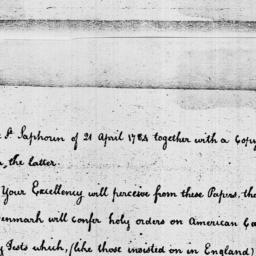 St. Saphorin of 21 April 1784 together with a Copy
the latter.
Your Excellency will perceive from these Papers, the
Denmark will confer holy orders on American Ca
Tests which, (like those insisted on in England)